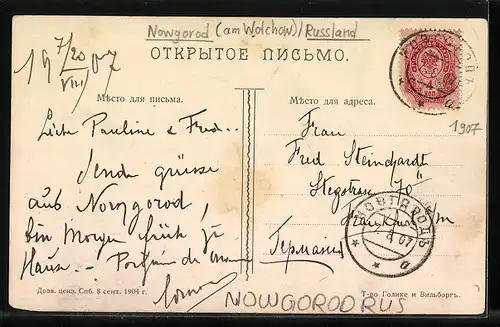 Nowgorod (am Wolchow)/Russland
ОТКРЫТОЕ ПИСЬМО.
19 7/20 VIII 07
Мѣсто для письма.
Мѣсто для адреса.
1907
Liebe Pauline & Fred..
Sende grüsse
aus Nowgorod,
bin Morgen früh zu
Hause.–
Frau
Fred Steinhardt
70
Frankfurt a/m
Германія
НОВГОРОДЪ
07
Дозв. ценз. Спб. 8 сент. 1904 г.
Т-во Голике и Вильборгъ.
NOWGOROD RUS